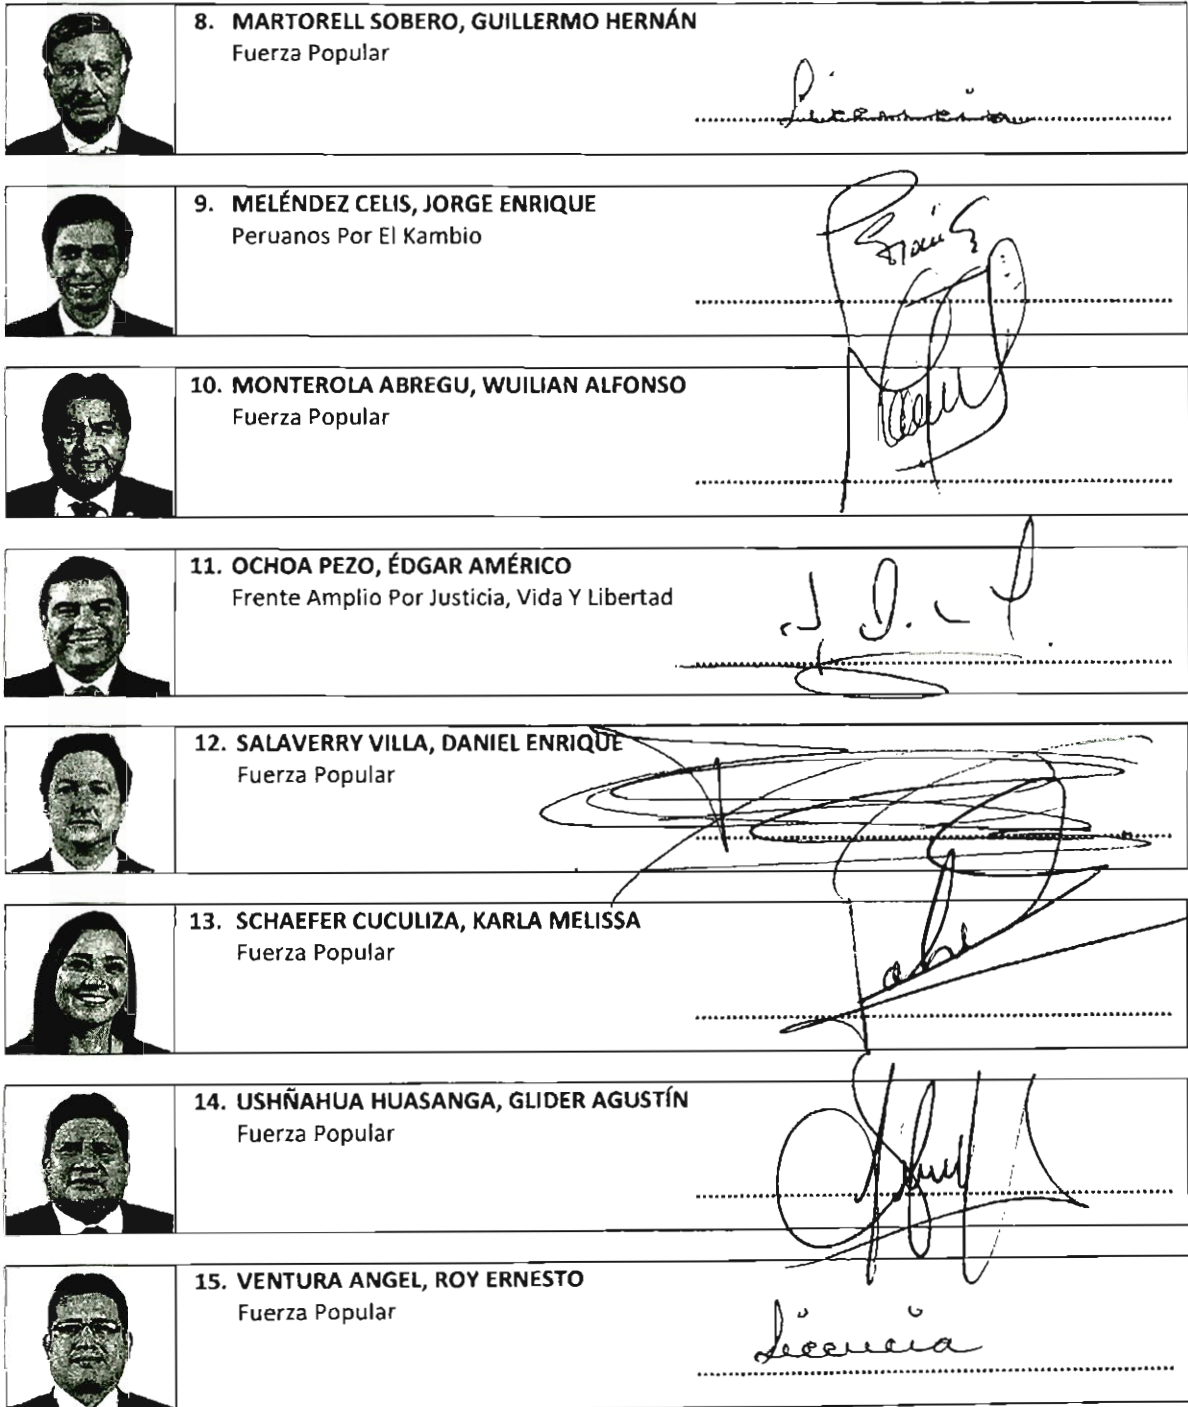 8. MARTORELL SOBERO, GUILLERMO HERNÁN
Fuerza Popular
Licencia
9. MELÉNDEZ CELIS, JORGE ENRIQUE
Peruanos Por El Kambio
10. MONTEROLA ABREGU, WUILIAN ALFONSO
Fuerza Popular
11. OCHOA PEZO, ÉDGAR AMÉRICO
Frente Amplio Por Justicia, Vida Y Libertad
12. SALAVERRY VILLA, DANIEL ENRIQUE
Fuerza Popular
13. SCHAEFER CUCULIZA, KARLA MELISSA
Fuerza Popular
14. USHÑAHUA HUASANGA, GLIDER AGUSTÍN
Fuerza Popular
15. VENTURA ANGEL, ROY ERNESTO
Fuerza Popular
Licencia